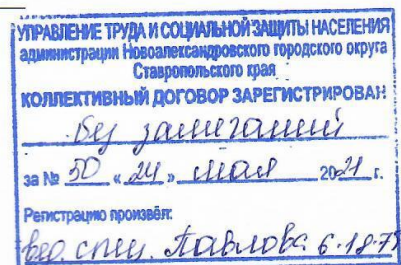 УПРАВЛЕНИЕ ТРУДА И СОЦИАЛЬНОЙ ЗАЩИТЫ НАСЕЛЕНИЯ
администрации Новоалександровского городского округа
Ставропольского края
КОЛЛЕКТИВНЫЙ ДОГОВОР ЗАРЕГИСТРИРОВАН
без замечаний
за № 50 « 24 » мая 2021 г.
Регистрацию произвёл:
вед. спец. Павлова 6-18-75